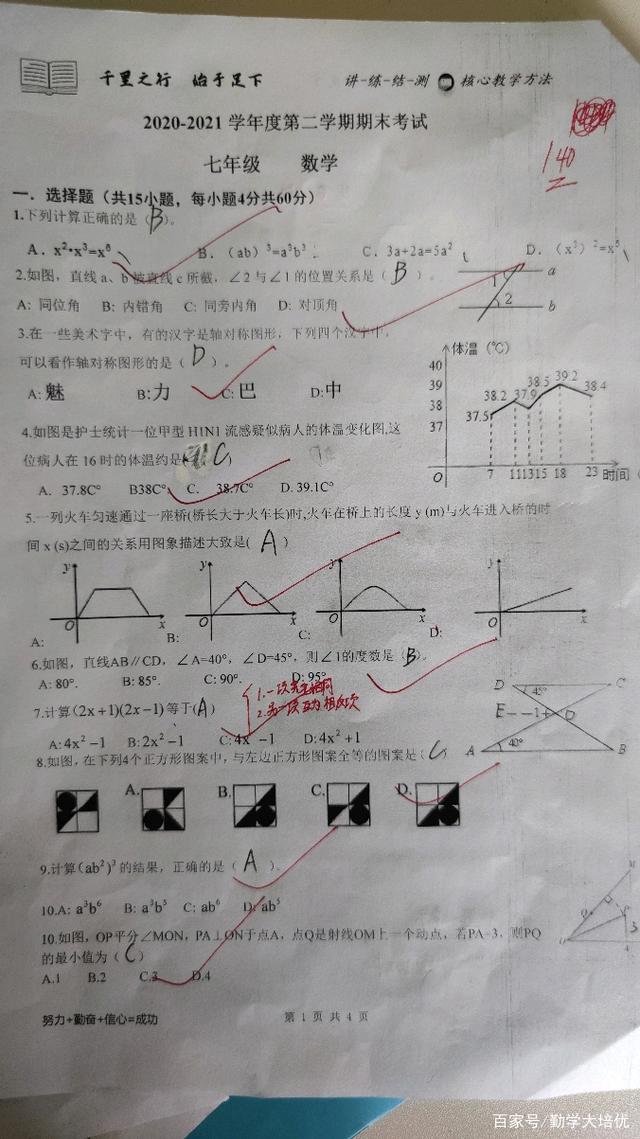 千里之行 始于足下 讲-练-结-测 核心教学方法
2020-2021 学年度第二学期期末考试
140
七年级 数学
一．选择题（共15小题，每小题4分共60分）
1.下列计算正确的是（B）。
A．x²•x³=x⁶ B．（ab）³=a³b³ C．3a+2a=5a² D．（x³）²=x⁵
2.如图，直线 a、b 被直线 c 所截，∠2 与∠1 的位置关系是（ B ）。
A: 同位角 B: 内错角 C: 同旁内角 D: 对顶角
1 a
2 b
3.在一些美术字中，有的汉字是轴对称图形，下列四个汉字中，
可以看作轴对称图形的是（ D ）。
A: 魅 B:力 C: 巴 D:中
体温（℃）
40
39
38
37
37.5 38.2 37.9 38.5 39.2 38.4
O 7 11 13 15 18 23 时间
4.如图是护士统计一位甲型 H1N1 流感疑似病人的体温变化图,这
位病人在 16 时的体温约是 C ）
A．37.8C° B38C° C．38.7C° D. 39.1C°
5.一列火车匀速通过一座桥(桥长大于火车长)时,火车在桥上的长度 y (m)与火车进入桥的时
间 x (s)之间的关系用图象描述大致是( A ）
y y y y
O x O x O x O x
A: B: C: D:
6.如图，直线AB∥CD，∠A=40°，∠D=45°，则∠1的度数是（B）。
A: 80°. B: 85°. C: 90°. D: 95°
D 45° C
E 1
A 40° B
7.计算(2x+1)(2x−1)等于(A)
A:4x²−1 B:2x²−1 C:4x −1 D:4x²+1
8.如图，在下列4个正方形图案中，与左边正方形图案全等的图案是（C
A. B. C. D.
9.计算(ab²)³的结果，正确的是（ A ）。
10.A: a³b⁶ B: a³b⁵ C: ab⁶ D: ab⁵
10.如图，OP平分∠MON，PA⊥ON于点A，点Q是射线OM上一个动点，若PA=3，则PQ
的最小值为（C）
A.1 B.2 C.3 D.4
努力+勤奋+信心=成功 第 1 页 共 4 页
百家号/勤学大培优